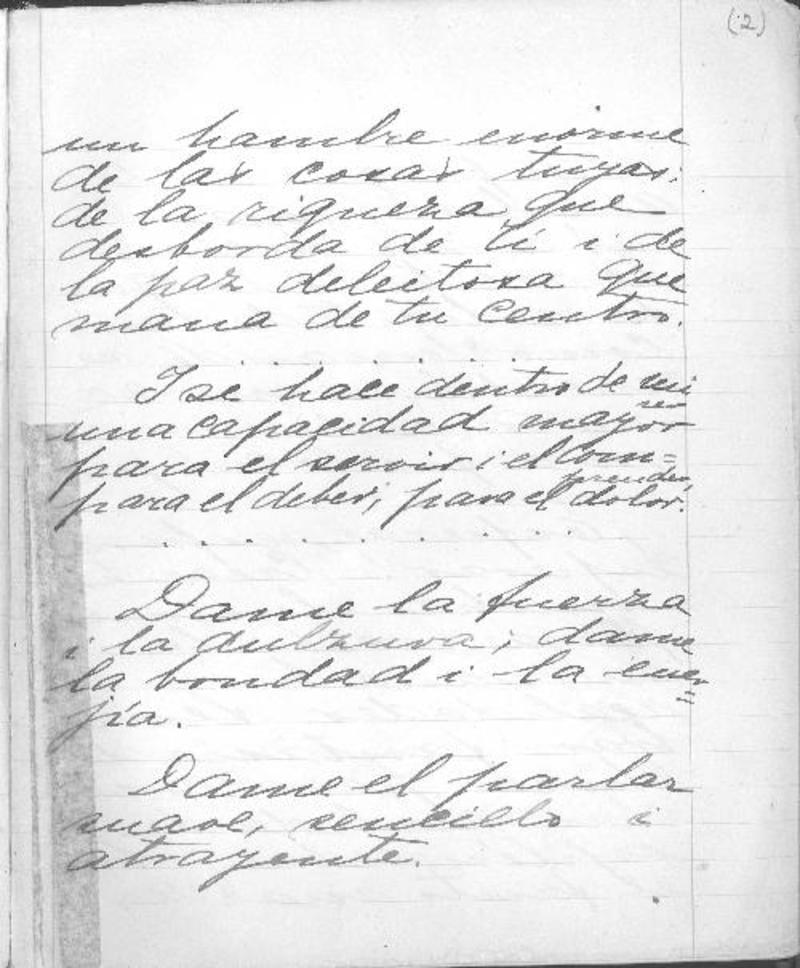 (2)
un hambre enorme
de las cosas tuyas:
de la riqueza que
desborda de ti i de
la paz deleitosa que
mana de tu centro.
. . . . . . . .
I se hace dentro de mi
ser
una capacidad mayor
para el servir i el com=
prender,
para el deber, para el dolor.
. . . . . . . .
Dame la fuerza
i la dulzura; dame
la bondad i la ener=
jía.
Dame el parlar
suave, sencillo i
atrayente.